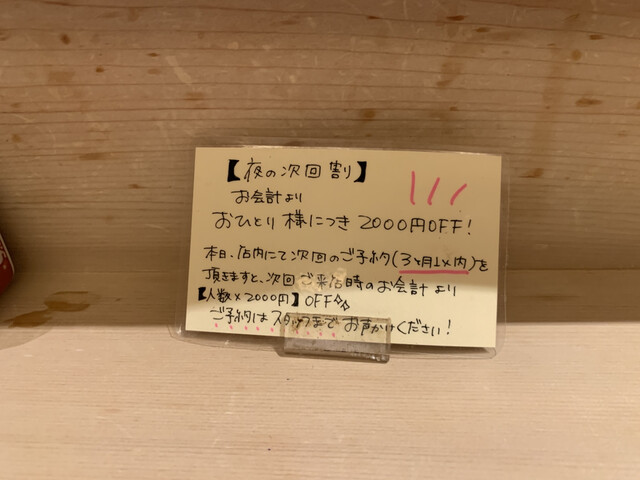 【夜の次回割】
お会計より
おひとり様につき2000円OFF!
本日、店内にて次回のご予約(3ヶ月以内)を
頂きますと、次回ご来店時のお会計より
【人数×2000円】OFF☆
ご予約はスタッフまでお声かけください!